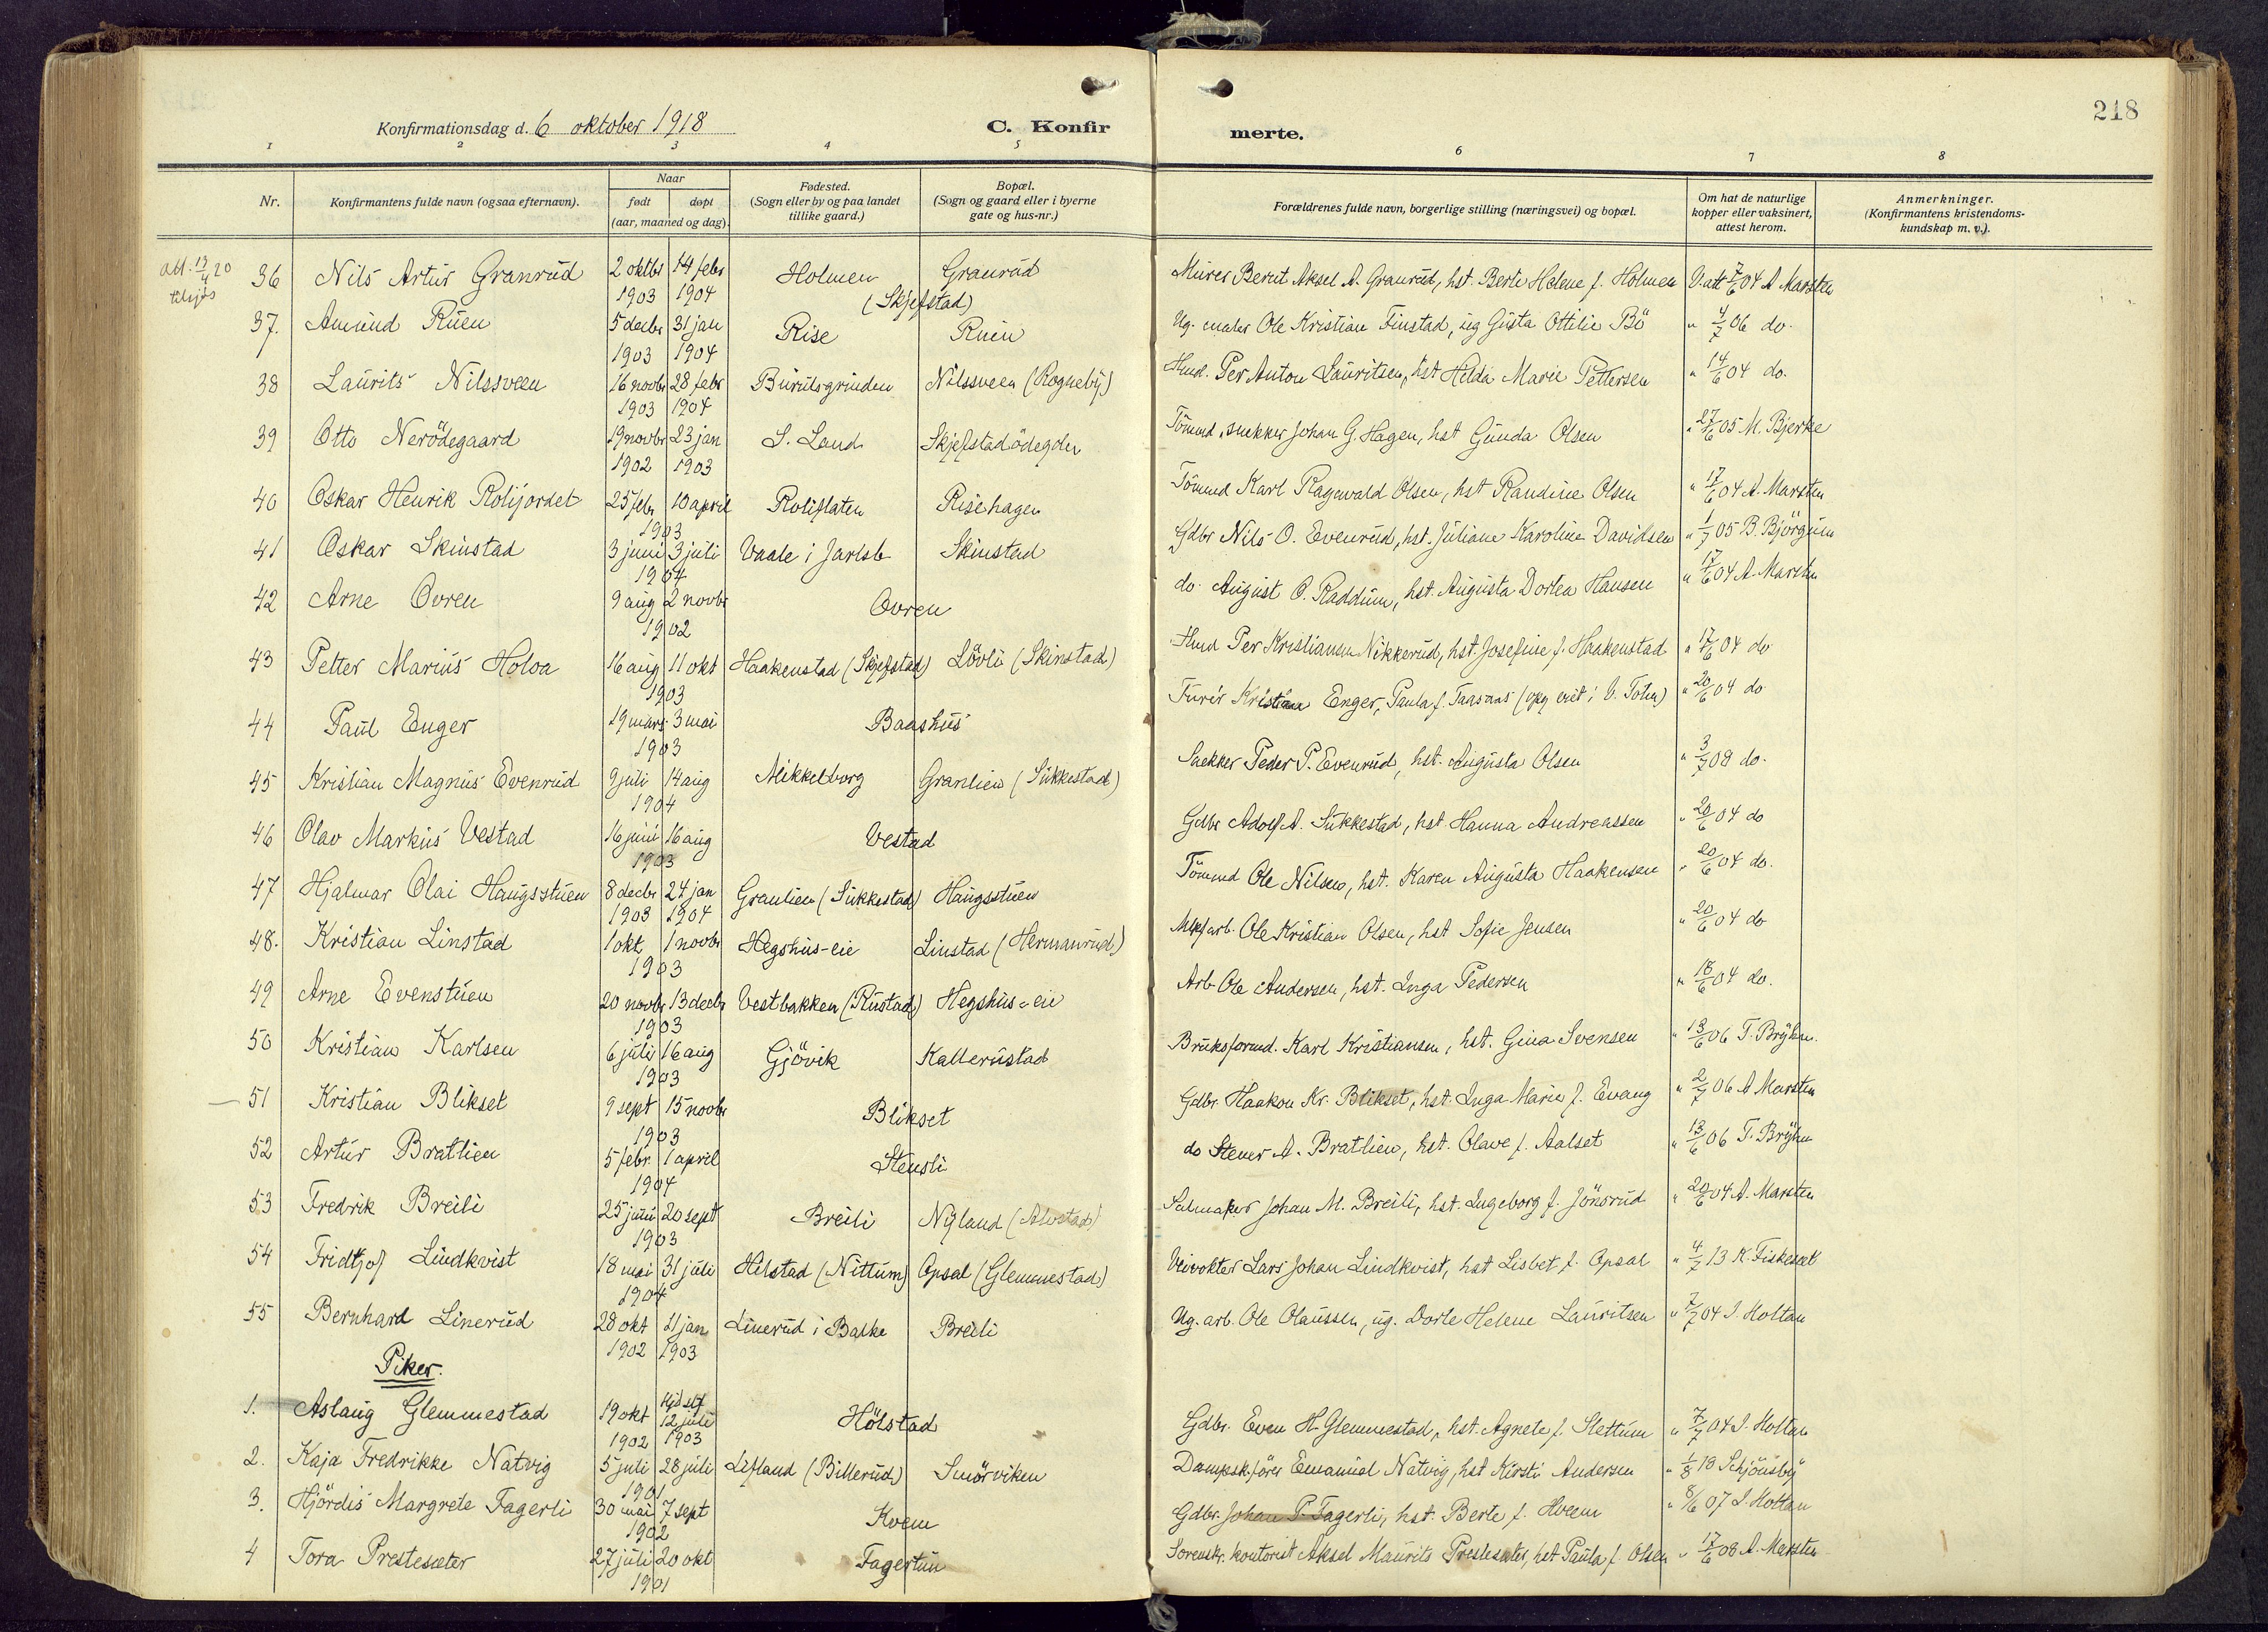 218
Konfirmationsdag d. 6 oktober 1918 C. Konfirmerte.
1 2 3 4 5 6 7 8
Nr. Konfirmantens fulde navn (ogsaa efternavn). Naar født døpt (aar, maaned og dag). Fødested. (Sogn eller by og paa landet tillike gaard.) Bopæl. (Sogn og gaard eller i byerne gate og hus-nr.) Forældrenes fulde navn, borgerlige stilling (næringsvei) og bopæl. Om hat de naturlige kopper eller vaksinert, attest herom. Anmerkninger. (Konfirmantens kristendomskundskap m. v.).
att. 13/4 20 tilsjøs
36 Nils Artur Granrud 2 oktbr 1903 14 febr 1904 Holmen Granrud (Skjefstad) Murer Bernt Aksel A. Granrud, hst. Berte Helene f. Holmen V. att 7/6 04 A Marsten
37. Amund Ruen 5 decbr 1903 31 jan 1904 Rise Ruen Ug. maler Ole Kristian Finstad, ug Gusta Ottilie Bö " 4/7 06 do.
38 Laurits Nilssveen 16 novbr 1903 28 febr 1904 Burulsgrinden Nilssveen (Rogneby) Hmd. Per Anton Lauritsen, hst Hilda Marie Pettersen " 14/6 04 do.
39 Otto Nerödegaard 19 novbr 1902 23 jan 1903 S. Land Skjefstadödegden Tömmd, snekker Johan G. Hagen, hst Gunda Olsen " 27/6 05 M. Bjerke
40 Oskar Henrik Rolijordet 25 febr 10 april 1903 Roliflaten Risehagen Tömmd Karl Ragnvald Olsen, hst Randine Olsen " 17/6 04 A. Marsten
41 Oskar Skinstad 3 juni 3 juli 1904 Vaale i Jarlsb Skinstad Gdbr Nils O. Evenrud, hst. Juliane Karoline Davidsen " 1/7 05 B. Björgum
42 Arne Ovren 9 aug 2 novbr 1902 Ovren do. August O. Raddum, hst. Augusta Dortea Hansen " 17/6 04 A. Marsten
43 Petter Marius Holoa 16 aug 11 okt 1903 Haakenstad (Skjefstad) Lövli (Skinstad) Hmd Per Kristiansen Nikkerud, hst. Josefine f. Haakenstad " 17/6 04 do
44 Paul Enger 19 mars 3 mai 1903 Baashus Furér Kristian Enger, Paula f. Taasaas " 20/6 04 do.
45 Kristian Magnus Evenrud 9 juli 14 aug 1904 Mikkelborg Granlien (Sukkestad) Snekker Peder P. Evenrud, hst. Augusta Olsen " 3/7 08 do.
46 Olav Markus Vestad 16 juni 16 aug 1903 Vestad Gdbr Adolf A. Sukkestad, hst. Hanna Andreassen " 20/6 04 do
47 Hjalmar Olai Haugsstuen 8 decbr 1903 24 jan 1904 Granlien (Sukkestad) Haugsstuen Tömmd Ole Nilsen, hst. Karen Augusta Haakensen " 20/6 04 do.
48. Kristian Linstad 1 okt 1 novbr 1903 Hegshus-eie Linstad (Hermanrud) Mlkfarb. Ole Kristian Olsen, hst Sofie Jensen " 20/6 04 do
49 Arne Evenstuen 20 novbr 13 decbr 1903 Vestbakken (Rustad) Hegshus-eie Arb. Ole Andersen, hst. Inga Pedersen " 18/6 04 do.
50 Kristian Karlsen 6 juli 16 aug 1903 Gjövik Kallerustad Bruksformd. Karl Kristiansen, hst. Gina Svensen " 13/6 06 T. Bryhn.
51 Kristian Blikset 9 sept 15 novbr 1903 Blikset Gdbr. Haakon Kr. Blikset, hst. Inga Marie f. Evang " 2/7 06 A Marsten
52 Artur Bratlien 5 febr. 1 april 1904 Stensli do Stener A. Bratlien, hst. Olave f. Aalset " 13/6 06 T. Bryhn
53 Fredrik Breili 25 juni 20 sept 1903 Breili Nyland (Alvstad) Salmaker Johan M. Breili, hst. Ingeborg f. Jönsrud " 20/6 04 A. Marsten
54 Fridtjof Lindkvist 18 mai 31 juli 1904 Hilstad (Nittum) Opsal (Glemmestad) Veivokter Lars Johan Lindkvist, hst Lisbet f. Opsal " 4/7 13 K. Fiskeset
55 Bernhard Linerud 28 okt 1902 21 jan 1903 Linerud i Balke Breili Ug. arb. Ole Olaussen, ug. Dorte Helene Lauritsen " 7/7 04 I. Holtan
Piker.
1. Aslaug Glemmestad 19 okt 1902 Hjd stf 12 juli 1903 Hölstad Gdbr. Even H. Glemmestad, hst. Agnete f. Slettum " 7/7 04 I. Holtan
2. Kaja Fredrikke Natvig 5 juli 28 juli 1901 Lifland (Billerud) Smörviken Dampsk.förer Emanuel Natvig, hst Kirsti Andersen " 1/8 18 Schjönsby
3. Hjördis Margrete Fagerli 30 mai 7 sept 1902 Kvem Gdbr. Johan P. Fagerli, hst. Berte f. Hveem " 8/6 07 I. Holtan
4 Tora Prestesæter 27 juli 20 okt 1901 Fagertun Sorenskr. kontorist Aksel Maurits Prestesæter, hst Paula f. Olsen " 17/6 08 A. Marsten